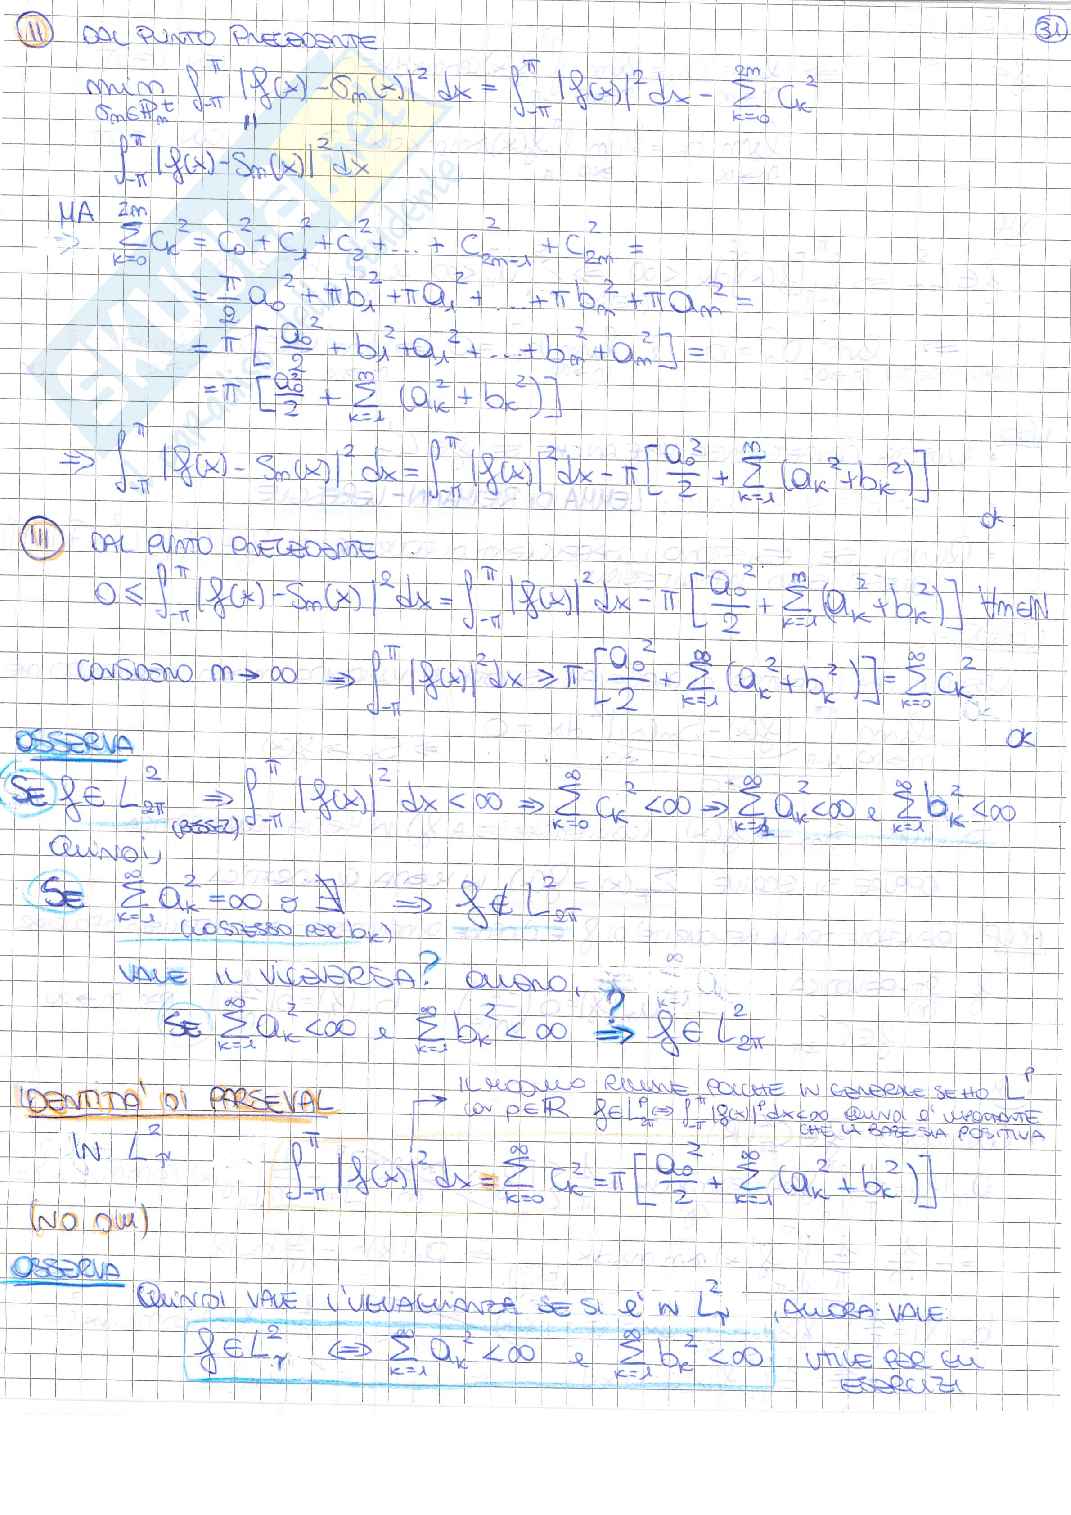 31
II DAL PUNTO PRECEDENTE
min ∫_{-π}^{π} |f(x) - σ_m(x)|² dx = ∫_{-π}^{π} |f(x)|² dx - Σ_{k=0}^{2m} C_k²
σ_m ∈ P_m^t
"
∫_{-π}^{π} |f(x) - S_m(x)|² dx
MA
⇒ Σ_{k=0}^{2m} C_k² = C_0² + C_1² + C_2² + ... + C_{2m-1}² + C_{2m}² =
= π/2 a_0² + πb_1² + πa_1² + ... + πb_m² + πa_m² =
= π [a_0²/2 + b_1² + a_1² + ... + b_m² + a_m²] =
= π [a_0²/2 + Σ_{k=1}^{m} (a_k² + b_k²)]
⇒ ∫_{-π}^{π} |f(x) - S_m(x)|² dx = ∫_{-π}^{π} |f(x)|² dx - π [a_0²/2 + Σ_{k=1}^{m} (a_k² + b_k²)]
ok
III DAL PUNTO PRECEDENTE
0 ≤ ∫_{-π}^{π} |f(x) - S_m(x)|² dx = ∫_{-π}^{π} |f(x)|² dx - π [a_0²/2 + Σ_{k=1}^{m} (a_k² + b_k²)] ∀m∈N
CONSIDERO m → ∞ ⇒ ∫_{-π}^{π} |f(x)|² dx ≥ π [a_0²/2 + Σ_{k=1}^{∞} (a_k² + b_k²)] = Σ_{k=0}^{∞} C_k²
ok
OSSERVA
SE f ∈ L²_{2π} ⇒ ∫_{-π}^{π} |f(x)|² dx < ∞ ⇒ Σ_{k=0}^{∞} C_k² < ∞ ⇒ Σ_{k=1}^{∞} a_k² < ∞ e Σ_{k=1}^{∞} b_k² < ∞
(BESSEL)
QUINDI,
SE Σ_{k=1}^{∞} a_k² = ∞ o ∄ ⇒ f ∉ L²_{2π}
(LO STESSO PER b_k)
VALE IL VICEVERSA? OVVERO,
SE Σ_{k=1}^{∞} a_k² < ∞ e Σ_{k=1}^{∞} b_k² < ∞ ?⇒ f ∈ L²_{2π}
IL MODULO RIMANE POICHÈ IN GENERALE SE HO L^p
IDENTITA' DI PARSEVAL
CON p∈R f∈L^p_{2π} ⇔ ∫_{-π}^{π} |f(x)|^p dx<∞ QUINDI È IMPORTANTE
CHE LA BASE SIA POSITIVA
IN L²_τ ∫_{-π}^{π} |f(x)|² dx = Σ_{k=0}^{∞} C_k² = π [a_0²/2 + Σ_{k=1}^{∞} (a_k² + b_k²)]
(NO DIM)
OSSERVA
QUINDI VALE L'UGUAGLIANZA SE SI È IN L²_τ, ALLORA VALE
f ∈ L²_τ ⇔ Σ_{k=1}^{∞} a_k² < ∞ e Σ_{k=1}^{∞} b_k² < ∞ UTILE PER GLI
ESERCIZI